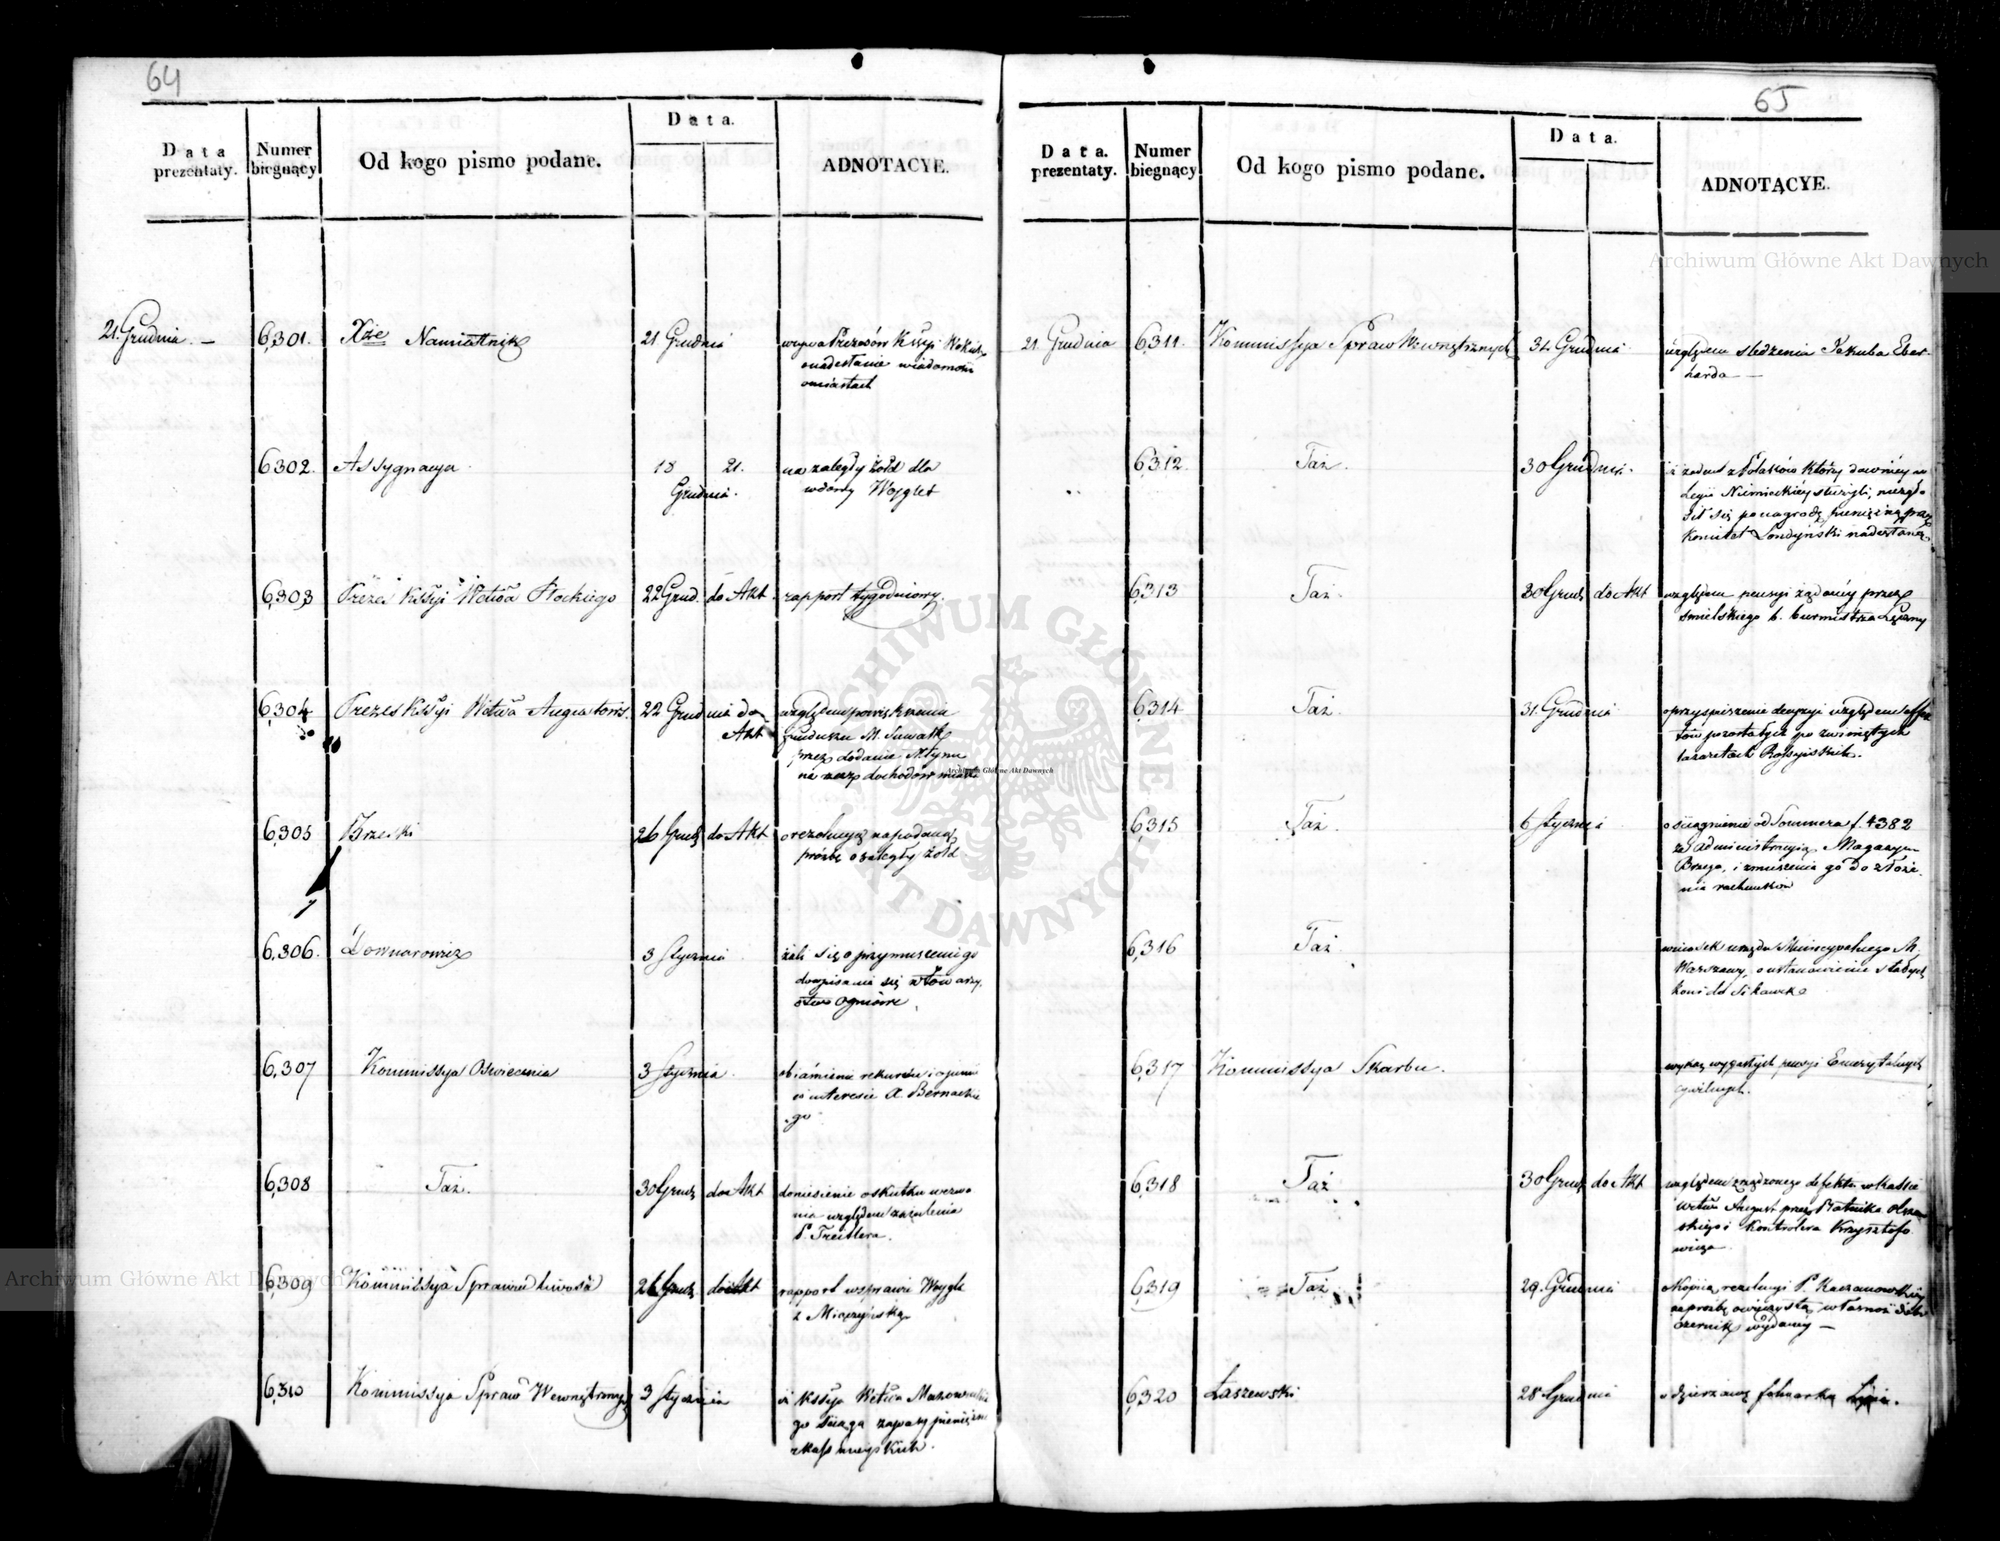 64
Data prezentaty.
Numer biegnący
Od kogo pismo podane.
Data.
ADNOTACYE.
21. Grudnia. —
6,301.
Xże Namiestnik
21 Grudnia
wzywa Prezesów Kssyi
o nadesłanie wiadomości
o miastach
6302.
Assygnacya.
18 21.
Grudnia.
na zaległy żołd dla
wdowy Woyglet
6,303
Prezes Kssyi Wdtwa Płockiego
22 Grud. do Akt.
rapport tygodniowy.
6,304
Prezes Kssyi Wdtwa Augustows.
22 Grudnia do
Akt
względem powiększenia
funduszu M. Suwałk
przez dodanie Młyna
na rzecz dochodów miasta
6,305
Brzeski
26 Grud do Akt
o rezolucyą na podaną
prośbę o zaległy żołd
6,306.
Downarowicz
3 Stycznia
żali się o przymuszenie go
do wpisania się w towarzy.
stwo ogniowe.
6,307
Kommissya Oswiecenia
3 Stycznia.
w interesie X. Bernackie
go
6,308
Taż.
30 Grud do Akt
doniesienie o skutku wezwa
nia względem zażalenia
P. Treitlera.
6,309
Kommissya Sprawiedliwości
26 Grud do Akt
rapport w sprawie Woyglet
z Miączyńską
6,310
Kommissya Spraw Wewnętrznych
3 Stycznia
iż Kssya Wdtwa Mazowieckie
go ściąga zapasy pieniężne
z kass mieyskich.
65
Data. prezentaty.
Numer biegnący
Od kogo pismo podane.
Data.
ADNOTACYE.
21 Grudnia
6,311.
Kommissya Spraw Wewnętrznych
31. Grudnia
względem śledzenia Jakuba Eber-
harda —
6,312.
Taż.
30 Grudnia.
iż żaden z Polaków którzy dawniey w
Legii Niemieckiey służyli, niezgło
sił się po nagrodę pieniężną przez
Komitet Londyński nadesłaną
6,313
Taż.
30 Grud do Akt
względem pensyi żądaney przez
Smielskiego b. burmistrza
6,314
Taż.
31. Grudnia
o przyspieszenie decyzyi względem effek
tów pozostałych po zwiniętych
lazaretach Rossyiskich.
6,315
Taż.
6 Stycznia
o ściągnienie od Sommera f. 4382
za administracyą Magazynu
Brzega, i zmuszenia go do złoże
nia rachunków
6,316
Taż
wniosek urzędu Municypalnego M.
Warszawy, o ustanowienie stałych
koni do Sikawek
6,317
Kommissya Skarbu.
wykaz wygasłych pensyi Emerytalnych
cywilnych.
6,318
Taż
30 Grud do Akt
względem zrządzonego defektu w kassie
Wdtwa August przez Płatnika Olszew
skiego i Kontrolera Krzysztofo
wicza
6,319
Taż
29. Grudnia
Kopiia rezolucyi P. Kaczanowskiey
na prośbę o wieczystą własność dóbr
Czernik wydaney —
6,320
Łaszewski
28 Grudnia
o dzierzawę folwarku Lipie.
ARCHIWUM GŁÓWNE AKT DAWNYCH
Archiwum Główne Akt Dawnych
Archiwum Główne Akt Dawnych
Archiwum Główne Akt Dawnych